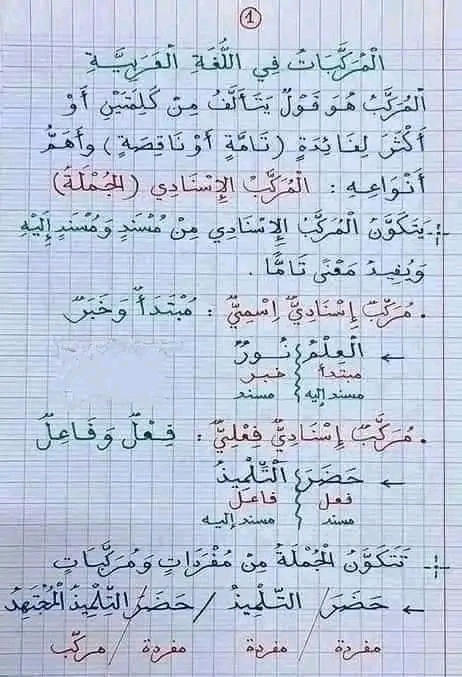 1
الْمُرَكَّبَاتُ فِي اللُّغَةِ الْعَرَبِيَّةِ
الْمُرَكَّبُ هُوَ قَوْلٌ يَتَأَلَّفُ مِنْ كَلِمَتَيْنِ أَوْ
أَكْثَرَ لِفَائِدَةٍ (تَامَّةٍ أَوْ نَاقِصَةٍ) وأَهَمُّ
أَنْوَاعِهِ : الْمُرَكَّبُ الإِسْنَادِي (الْجُمْلَةُ)
يَتَكَوَّنُ الْمُرَكَّبُ الإِسْنَادِي مِنْ مُسْنَدٍ وَمُسْنَدٍ إِلَيْهِ
وَيُفِيدُ مَعْنًى تَامًّا .
. مُرَكَّبٌ إِسْنَادِيٌّ اِسْمِيٌّ : مُبْتَدَأٌ وَخَبَرٌ
← الْعِلْمُ نُورٌ
مبتدأ خبر
مسند إليه مسند
. مُرَكَّبٌ إِسْنَادِيٌّ فِعْلِيٌّ : فِعْلٌ وَفَاعِلٌ
← حَضَرَ التِّلْمِيذُ
فعل فاعل
مسند مسند إليه
تَتَكَوَّنُ الْجُمْلَةُ مِنْ مُفْرَدَاتٍ وَمُرَكَّبَاتٍ
← حَضَرَ / التِّلْمِيذُ / حَضَرَ / التِّلْمِيذُ الْمُجْتَهِدُ
مفردة مفردة مفردة / مركّب